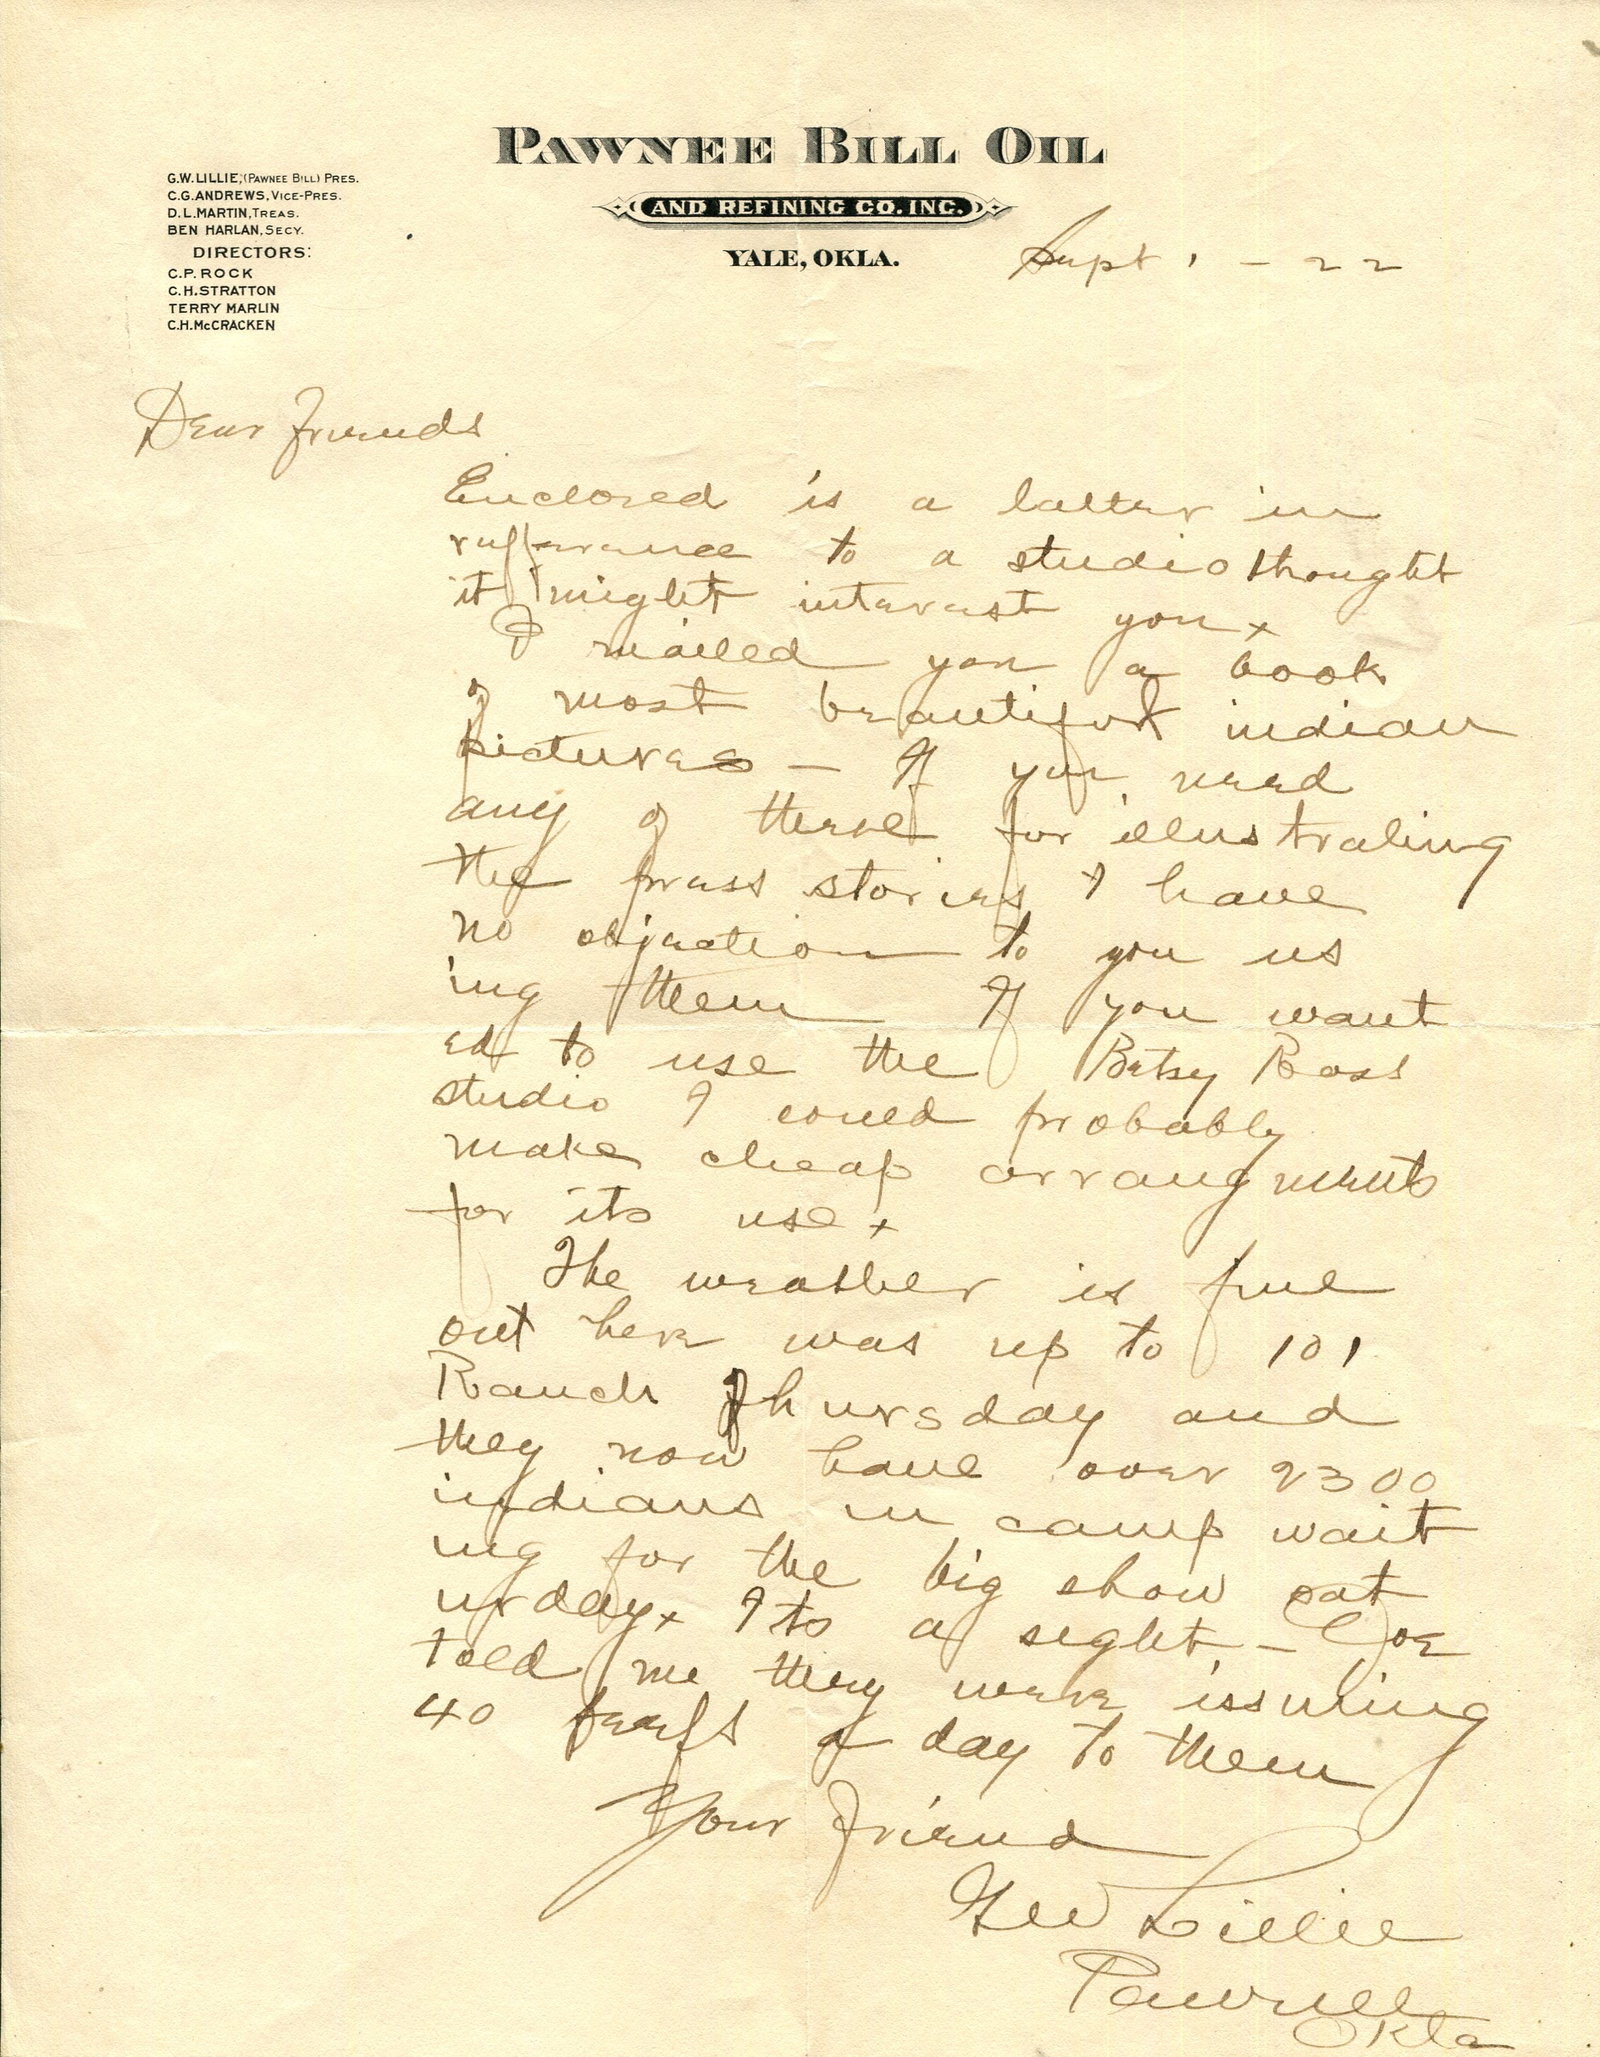 PAWNEE BILL OIL
AND REFINING CO. INC.
YALE, OKLA.
G.W. LILLIE, (PAWNEE BILL) PRES.
C.G. ANDREWS, VICE-PRES.
D.L. MARTIN, TREAS.
BEN HARLAN, SECY.
DIRECTORS:
C.P. ROCK
C.H. STRATTON
TERRY MARLIN
C.H. McCRACKEN
Sept 1 - 22
Dear Friends
Enclosed is a letter in
refferance to a studio thought
it might interest you x
I mailed you a book
of most beautiful indian
pictures — If you need
any of these for illustrating
the press stories I have
no objection to you us
ing them If you want
ed to use the Betsy Ross
studio I could probably
make cheap arrangments
for its use x
The weather is fine
out here was up to 101
Ranch Thursday and
they now have over 2300
indians in camp wait
ing for the big show sat
urday x Its a sight - Joe
told me they were issuing
40 beefs a day to them
Your friend
Geo Lillie
Pawnee
Okla